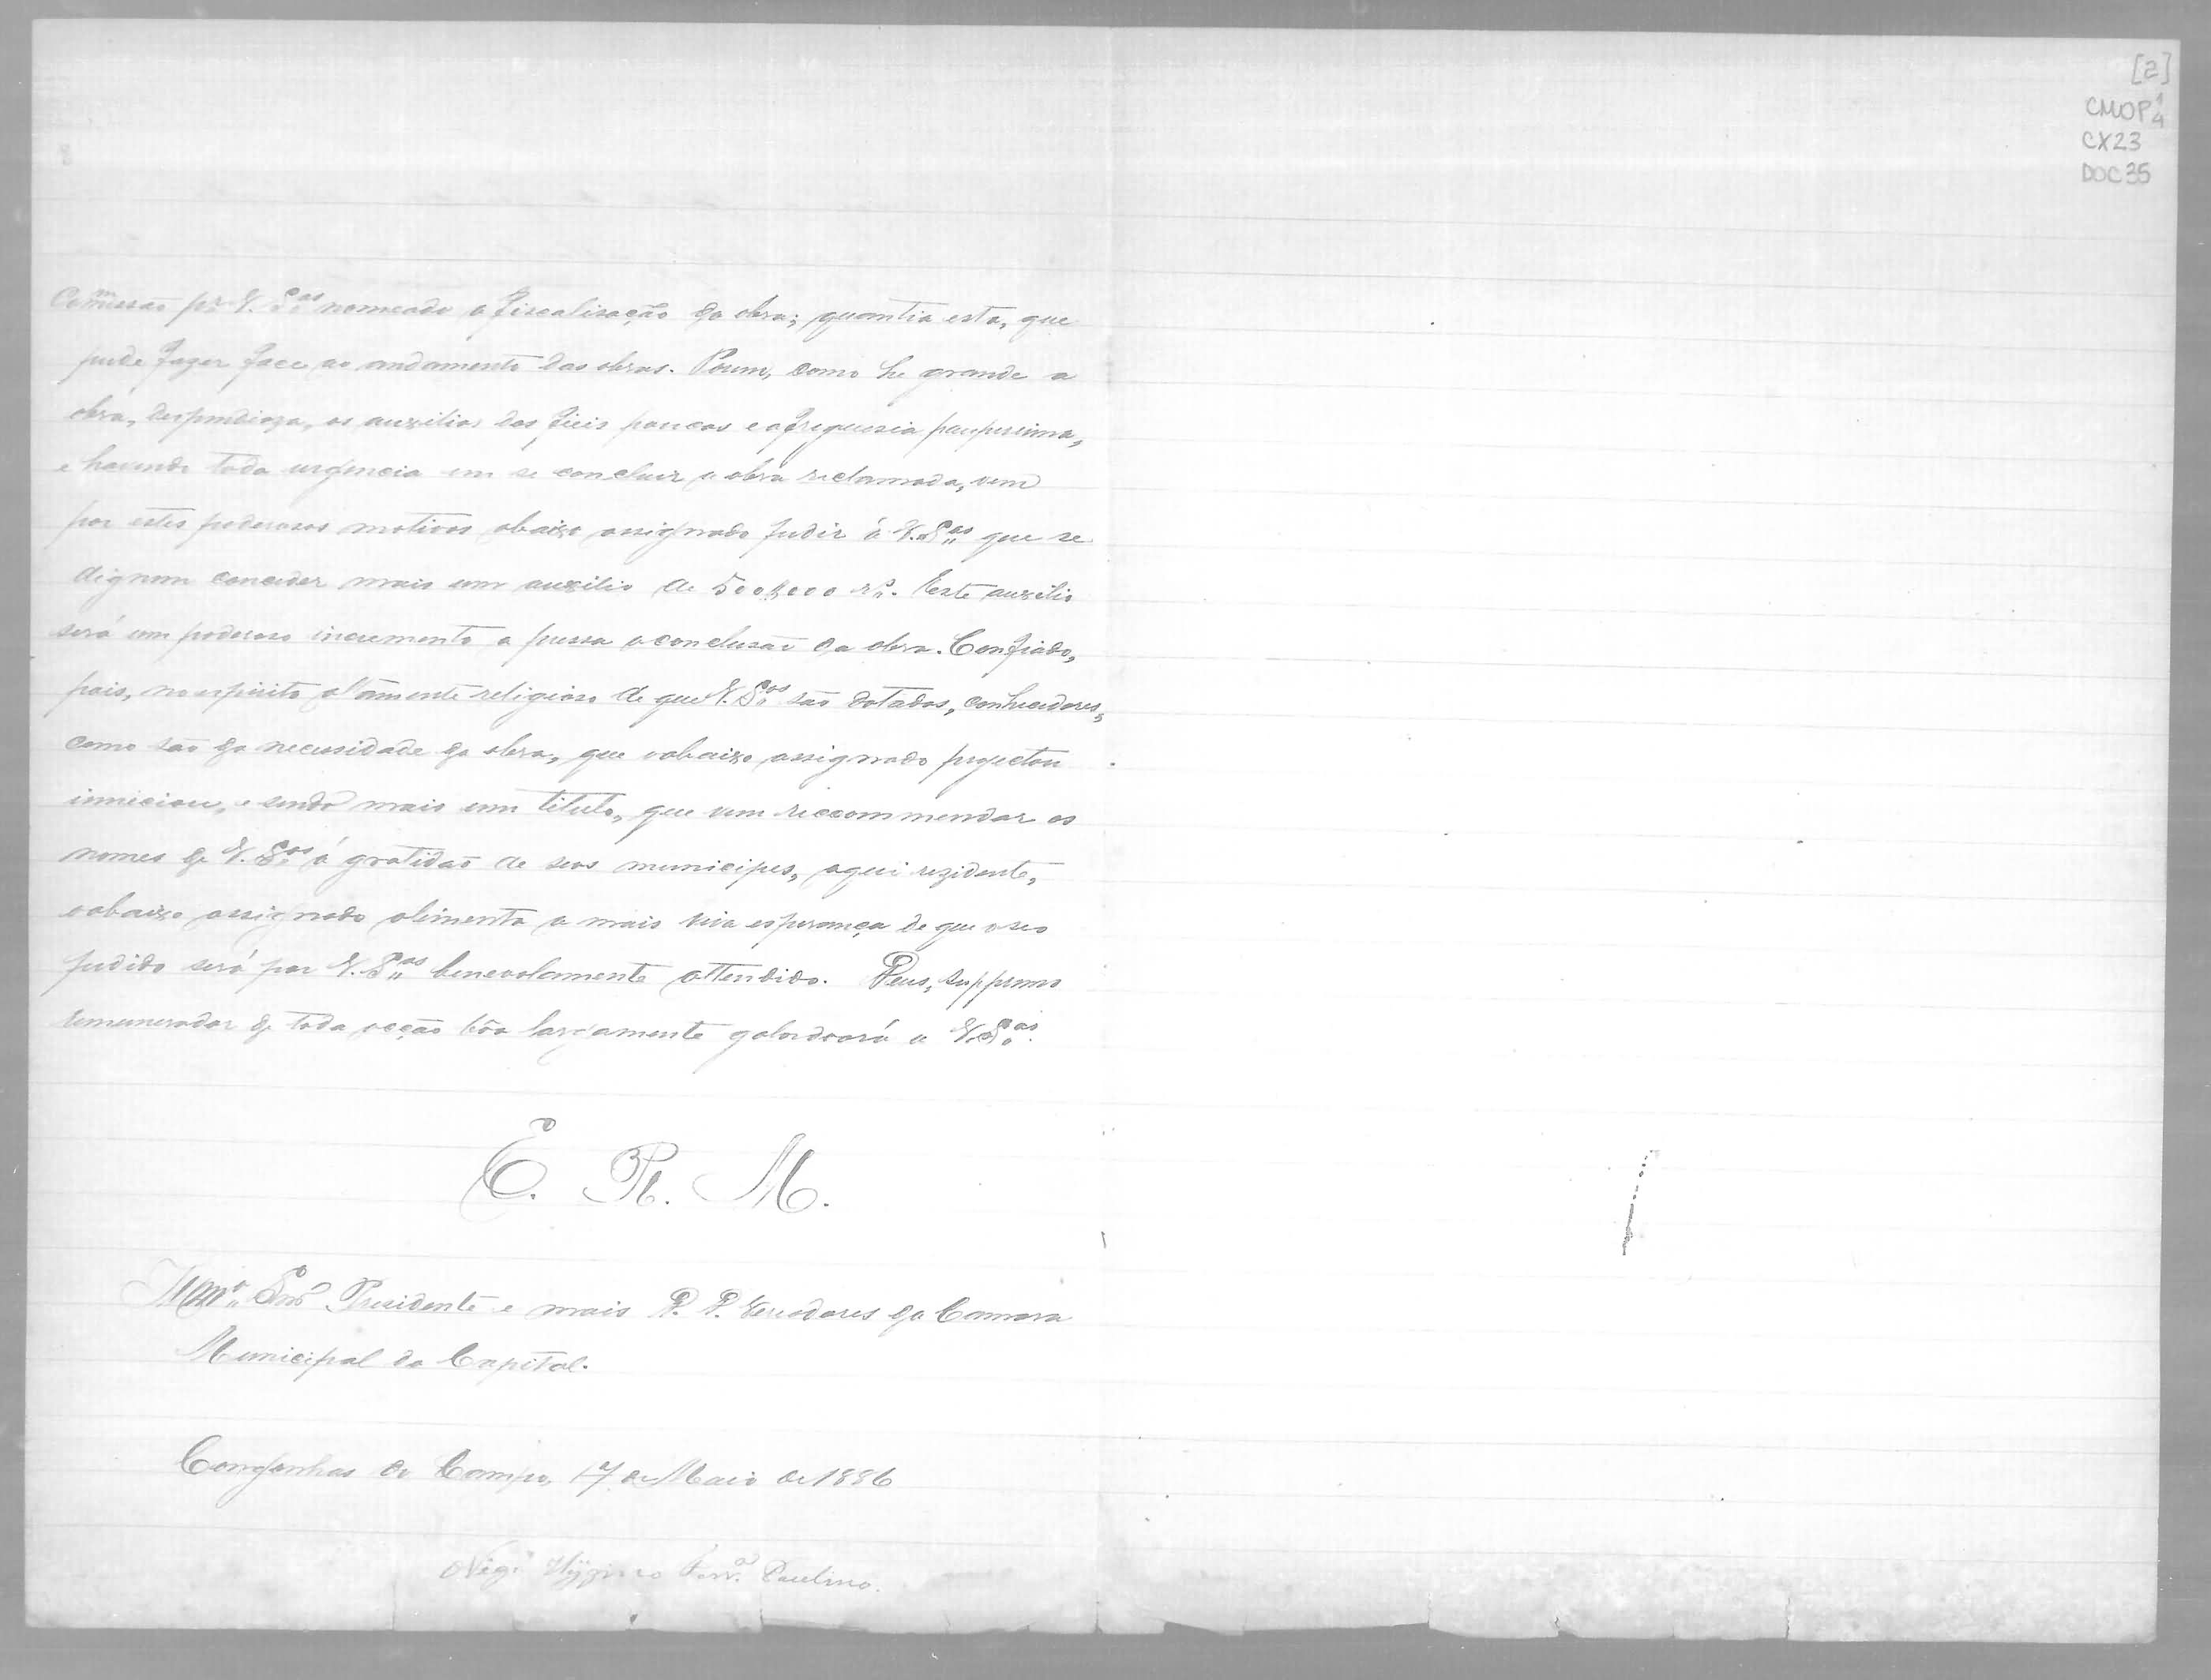 [2]
CMOP 1/4
CX23
DOC 35
Commissão por V. S.as nomeado a fiscalisação da obra; quantia esta, que
pude fazer face ao andamento das obras. Porem, como he grande a
obra, despendioza, os auxilios dos fieis poucos e a freguesia pauperrima,
e havendo toda urgencia em se concluir a obra reclamada, vem
por estes poderosos motivos abaixo assignado pedir á V. S.as que se
dignem conceder mais um auxilio de 500$000 rs. Este auxilio
será um poderoso incremento a pressa a conclusão da obra. Confiado,
pois, no espirito altamente religioso de que V. S.as são dotados, conhecedores,
como são da necessidade da obra, que o abaixo assignado projectou
inniciou, e sendo mais um titulo, que vem reccommendar os
nomes de V. S.as á gratidão de seos municipes, aqui rezidente,
o abaixo assignado alimenta a mais viva esperança de que o seo
pedido será por V. S.as benevolamente attendido. Deus, suppremo
remunerador de toda acção bôa largamente galardoará a V. S.as.
E. R. M.
Illmo. Snr. Presidente e mais P. P. Vereadores da Camara
Municipal da Capital.
Congonhas do Campo, 17 de Maio de 1886
Vigo. Hygino Ferra. Paulino.